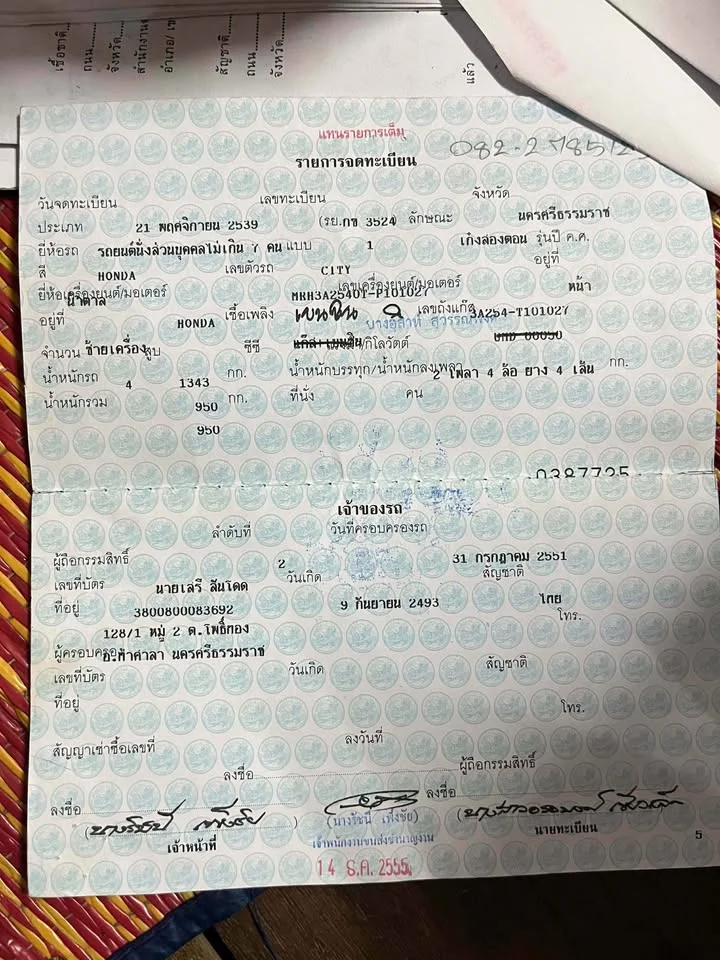 เชื้อชาติ
ถนน
จังหวัด
สำนักงาน
อำเภอ/ เข
สัญชาติ
ถนน
จังหวัด
แล้ว
แทนรายการเต็ม
รายการจดทะเบียน
วันจดทะเบียน เลขทะเบียน จังหวัด
ประเภท 21 พฤศจิกายน 2539 (รย. กข 3524 ลักษณะ นครศรีธรรมราช
ยี่ห้อรถ รถยนต์นั่งส่วนบุคคลไม่เกิน 7 คน แบบ 1 เก๋งสองตอน รุ่นปี ค.ศ.
สี HONDA เลขตัวรถ CITY อยู่ที่
ยี่ห้อเครื่องยนต์/มอเตอร์ น้ำตาล MRH3A2540T-P101027 เลขเครื่องยนต์/มอเตอร์ หน้า
อยู่ที่ HONDA เชื้อเพลิง เบนซิน เลขถังแก๊ส 3A254-T101027
จำนวน ซ้ายเครื่อง สูบ ซีซี กิโลวัตต์
น้ำหนักรถ 4 1343 กก. น้ำหนักบรรทุก/น้ำหนักลงเพลา 2 เพลา 4 ล้อ ยาง 4 เส้น กก.
น้ำหนักรวม 950 กก. ที่นั่ง คน
950
0387725
เจ้าของรถ
ลำดับที่ วันที่ครอบครองรถ
ผู้ถือกรรมสิทธิ์ 2 31 กรกฎาคม 2551
เลขที่บัตร นายเสรี สินโดด วันเกิด สัญชาติ
ที่อยู่ 3800800083692 9 กันยายน 2493 ไทย
โทร.
128/1 หมู่ 2 ต.โพธิ์ทอง
ผู้ครอบครอง อ.ท่าศาลา นครศรีธรรมราช
เลขที่บัตร วันเกิด สัญชาติ
ที่อยู่ โทร.
สัญญาเช่าซื้อเลขที่ ลงวันที่
ลงชื่อ ผู้ถือกรรมสิทธิ์
ลงชื่อ ลงชื่อ
(นางรัชนี เพ็งชัย)
เจ้าหน้าที่ นายทะเบียน
เจ้าพนักงานขนส่งชำนาญงาน
14 ธ.ค. 2555
5